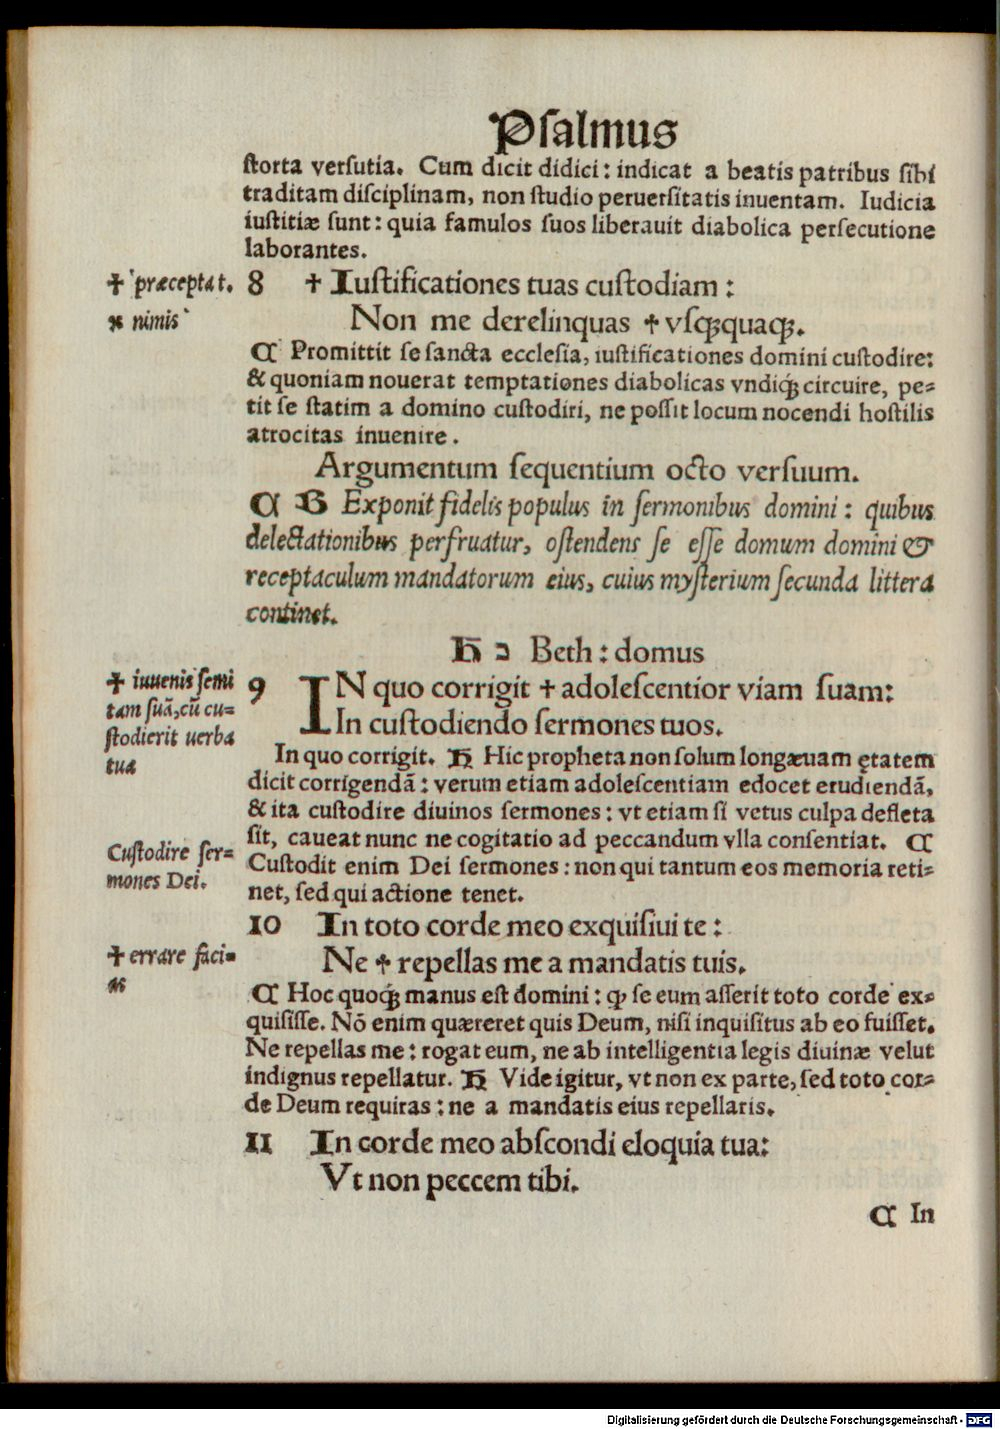 Psalmus
storta versutia. Cum dicit didici: indicat a beatis patribus sibi
traditam disciplinam, non studio peruersitatis inuentam. Iudicia
iustitiæ sunt: quia famulos suos liberauit diabolica persecutione
laborantes.
✝ præcepta t. 8 ✝ Iustificationes tuas custodiam:
nimis Non me derelinquas ✝ vsqꝫquaqꝫ.
C Promittit se sancta ecclesia, iustificationes domini custodire:
& quoniam nouerat temptationes diabolicas vndiqꝫ circuire, pe=
tit se statim a domino custodiri, ne possit locum nocendi hostilis
atrocitas inuenire.
Argumentum sequentium octo versuum.
C B Exponit fidelis populus in sermonibus domini: quibus
delectationibus perfruatur, ostendens se esse domum domini &
receptaculum mandatorum eius, cuius mysterium secunda littera
continet.
H̄ ב Beth: domus
✝ iuuenis semi
tam suā, cū cu=
stodierit uerba
tua
9 IN quo corrigit ✝ adolescentior viam suam:
In custodiendo sermones tuos.
In quo corrigit. H̄ Hic propheta non solum longæuam ętatem
dicit corrigendā: verum etiam adolescentiam edocet erudiendā,
& ita custodire diuinos sermones: vt etiam si vetus culpa defleta
sit, caueat nunc ne cogitatio ad peccandum vlla consentiat. C
Custodire ser=
mones Dei.
Custodit enim Dei sermones: non qui tantum eos memoria reti=
net, sed qui actione tenet.
10 In toto corde meo exquisiui te:
✝ errare faci=
as
Ne ✝ repellas me a mandatis tuis.
C Hoc quoqꝫ manus est domini: ꝙ se eum asserit toto corde ex=
quisisse. Nō enim quæreret quis Deum, nisi inquisitus ab eo fuisset.
Ne repellas me: rogat eum, ne ab intelligentia legis diuinæ velut
indignus repellatur. H̄ Vide igitur, vt non ex parte, sed toto cor=
de Deum requiras: ne a mandatis eius repellaris.
11 In corde meo abscondi eloquia tua:
Vt non peccem tibi.
C In
Digitalisierung gefördert durch die Deutsche Forschungsgemeinschaft - DFG